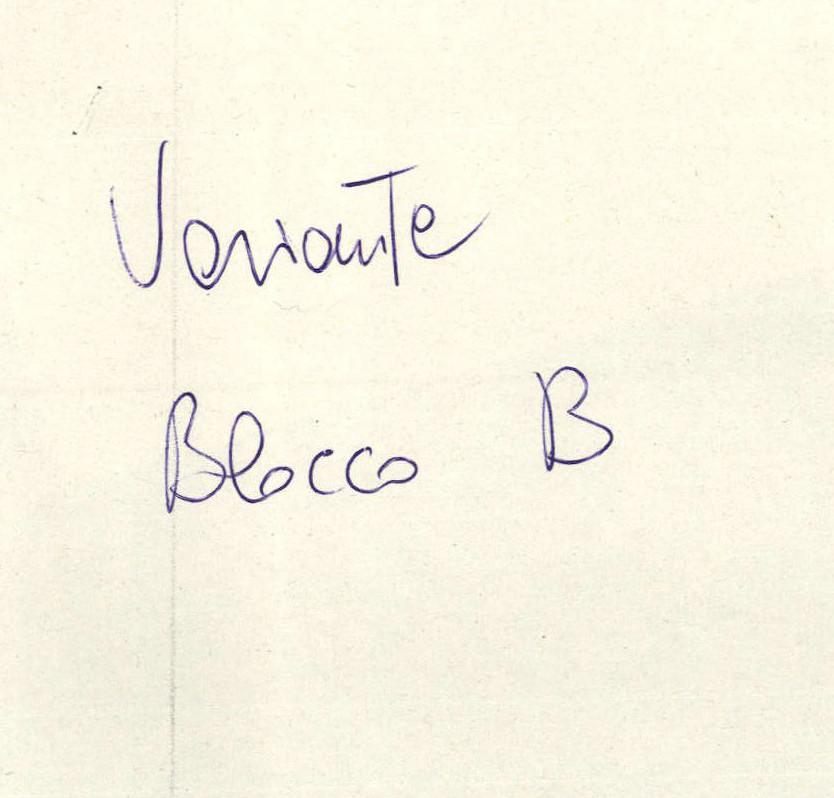 Variante
Blocco B